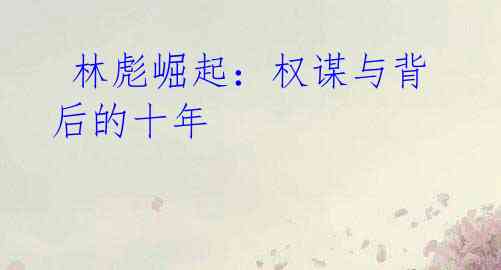 林彪崛起：权谋与背
后的十年